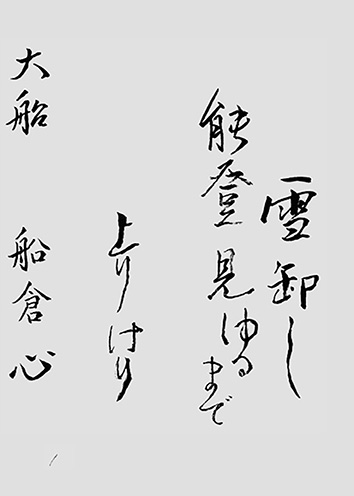 雪卸し
能登見ゆるまで
上りけり
大船 船倉心